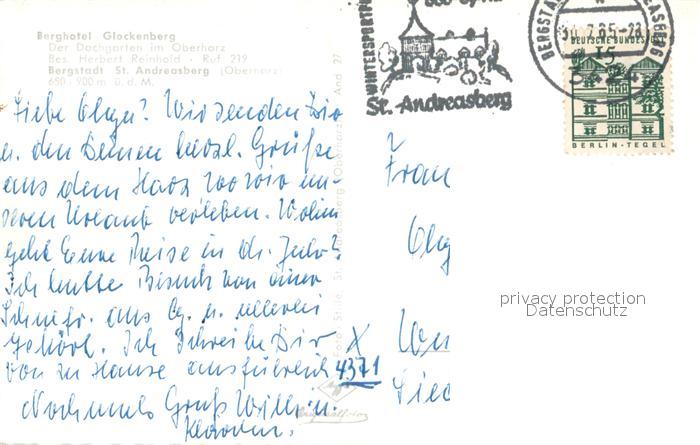 Berghotel Glockenberg
Der Dachgarten im Oberharz
Bes. Herbert Reinhold · Ruf 219
Bergstadt St. Andreasberg (Oberharz)
650 - 900 m ü. d. M.
Liebe Olga! Wir senden Dir
u. den Deinen herzl. Grüße
aus dem Harz wo wir un-
seren Urlaub verleben. Wohin
geht Eure Reise in dr. Jahr?
Ich hatte Besuch von einer
aus u. allerlei
gehört. Ich schreibe Dir
von zu Hause ausführlich
Nochmals Gruß Willi u.
WINTERSPORTPL
St. Andreasberg
BERGSTA
ANDREASBERG
30.7.65-23
DEUTSCHE BUNDESPOST
15
BERLIN-TEGEL
Frau
Olg
4371
And 27
privacy protection
Datenschutz